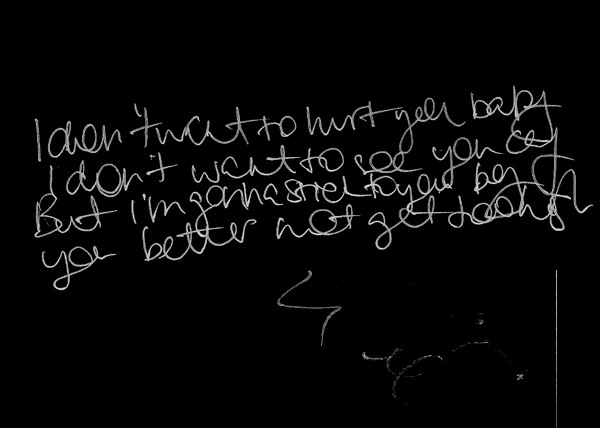 I don't want to hurt you baby
I don't want to see you cry
But i'm gonna stick to you boy
you better not get too high